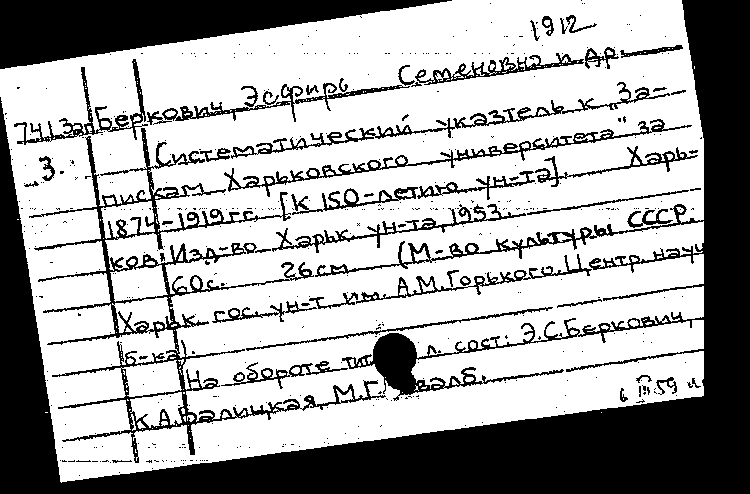 1912
Беркович, Эсфирь Семеновна и др.
3. Систематический указтель к „За-
пискам Харьковского университета" за
1874-1919 гг. [К 150-летию ун-та]. Харь-
ков. Изд-во Харьк. ун-та, 1953.
60с. 26см. (М-во культуры СССР.
Харьк. гос. ун-т им. А.М.Горького. Центр. науч
б-ка).
На обороте тит л. сост: Э.С.Беркович,
К.А.Валицкая, М.Г.
6 III 59